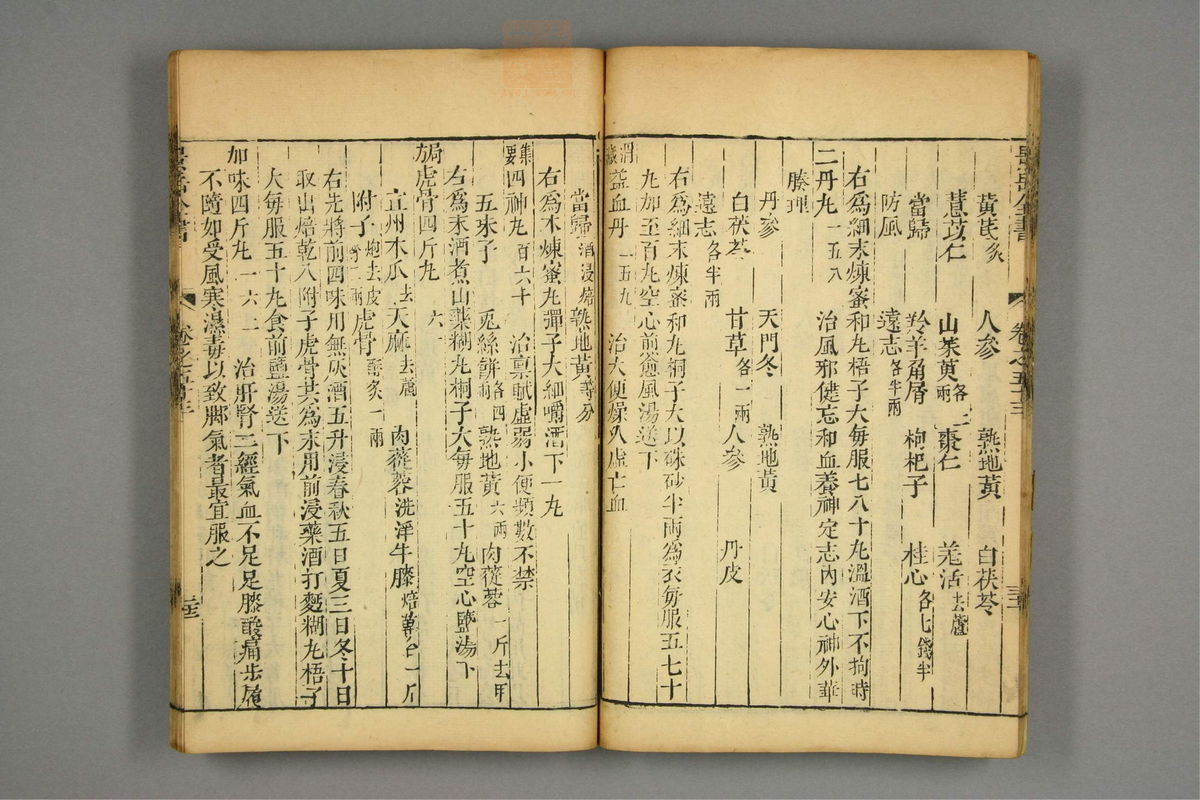 景岳全書 卷之五十三
黃芪炙 人參 熟地黃 白茯苓
薏苡仁 山茱萸各一兩 棗仁 羌活去蘆
當歸 羚羊角屑 枸杞子 桂心各七錢半
防風 遠志各半兩
右爲細末煉蜜和丸梧子大每服七八十丸溫酒下不拘時
二丹丸一五八 治風邪健忘和血養神定志內安心神外華
腠理
丹參 天門冬 熟地黃
白茯苓 甘草各一兩 人參 丹皮
遠志各半兩
右爲細末煉蜜和丸桐子大以硃砂半兩爲衣每服五七十
丸加至百丸空心前愈風湯送下
益血丹一五九 治大便燥久虛亡血
當歸酒浸焙 熟地黃等分
右爲末煉蜜丸彈子大細嚼酒下一丸
集要四神丸百六十 治禀賦虛弱小便頻數不禁
五味子 兎絲餅各四兩 熟地黃六兩 肉蓯蓉一斤去甲
右爲末酒煮山藥糊丸桐子大每服五十丸空心鹽湯下
局方虎骨四斤丸六一
宜州木瓜去 天麻去蘆 肉蓯蓉洗淨 牛膝焙乾各一斤
附子炮去皮二兩 虎骨酥炙一兩
右先將前四味用無灰酒五升浸春秋五日夏三日冬十日
取出焙乾入附子虎骨共爲末用前浸藥酒打麪糊丸梧子
大每服五十丸食前鹽湯送下
加味四斤丸一六二 治肝腎二經氣血不足足膝酸痛步履
不隨如受風寒濕毒以致脚氣者最宜服之
景岳全書 卷之五十三